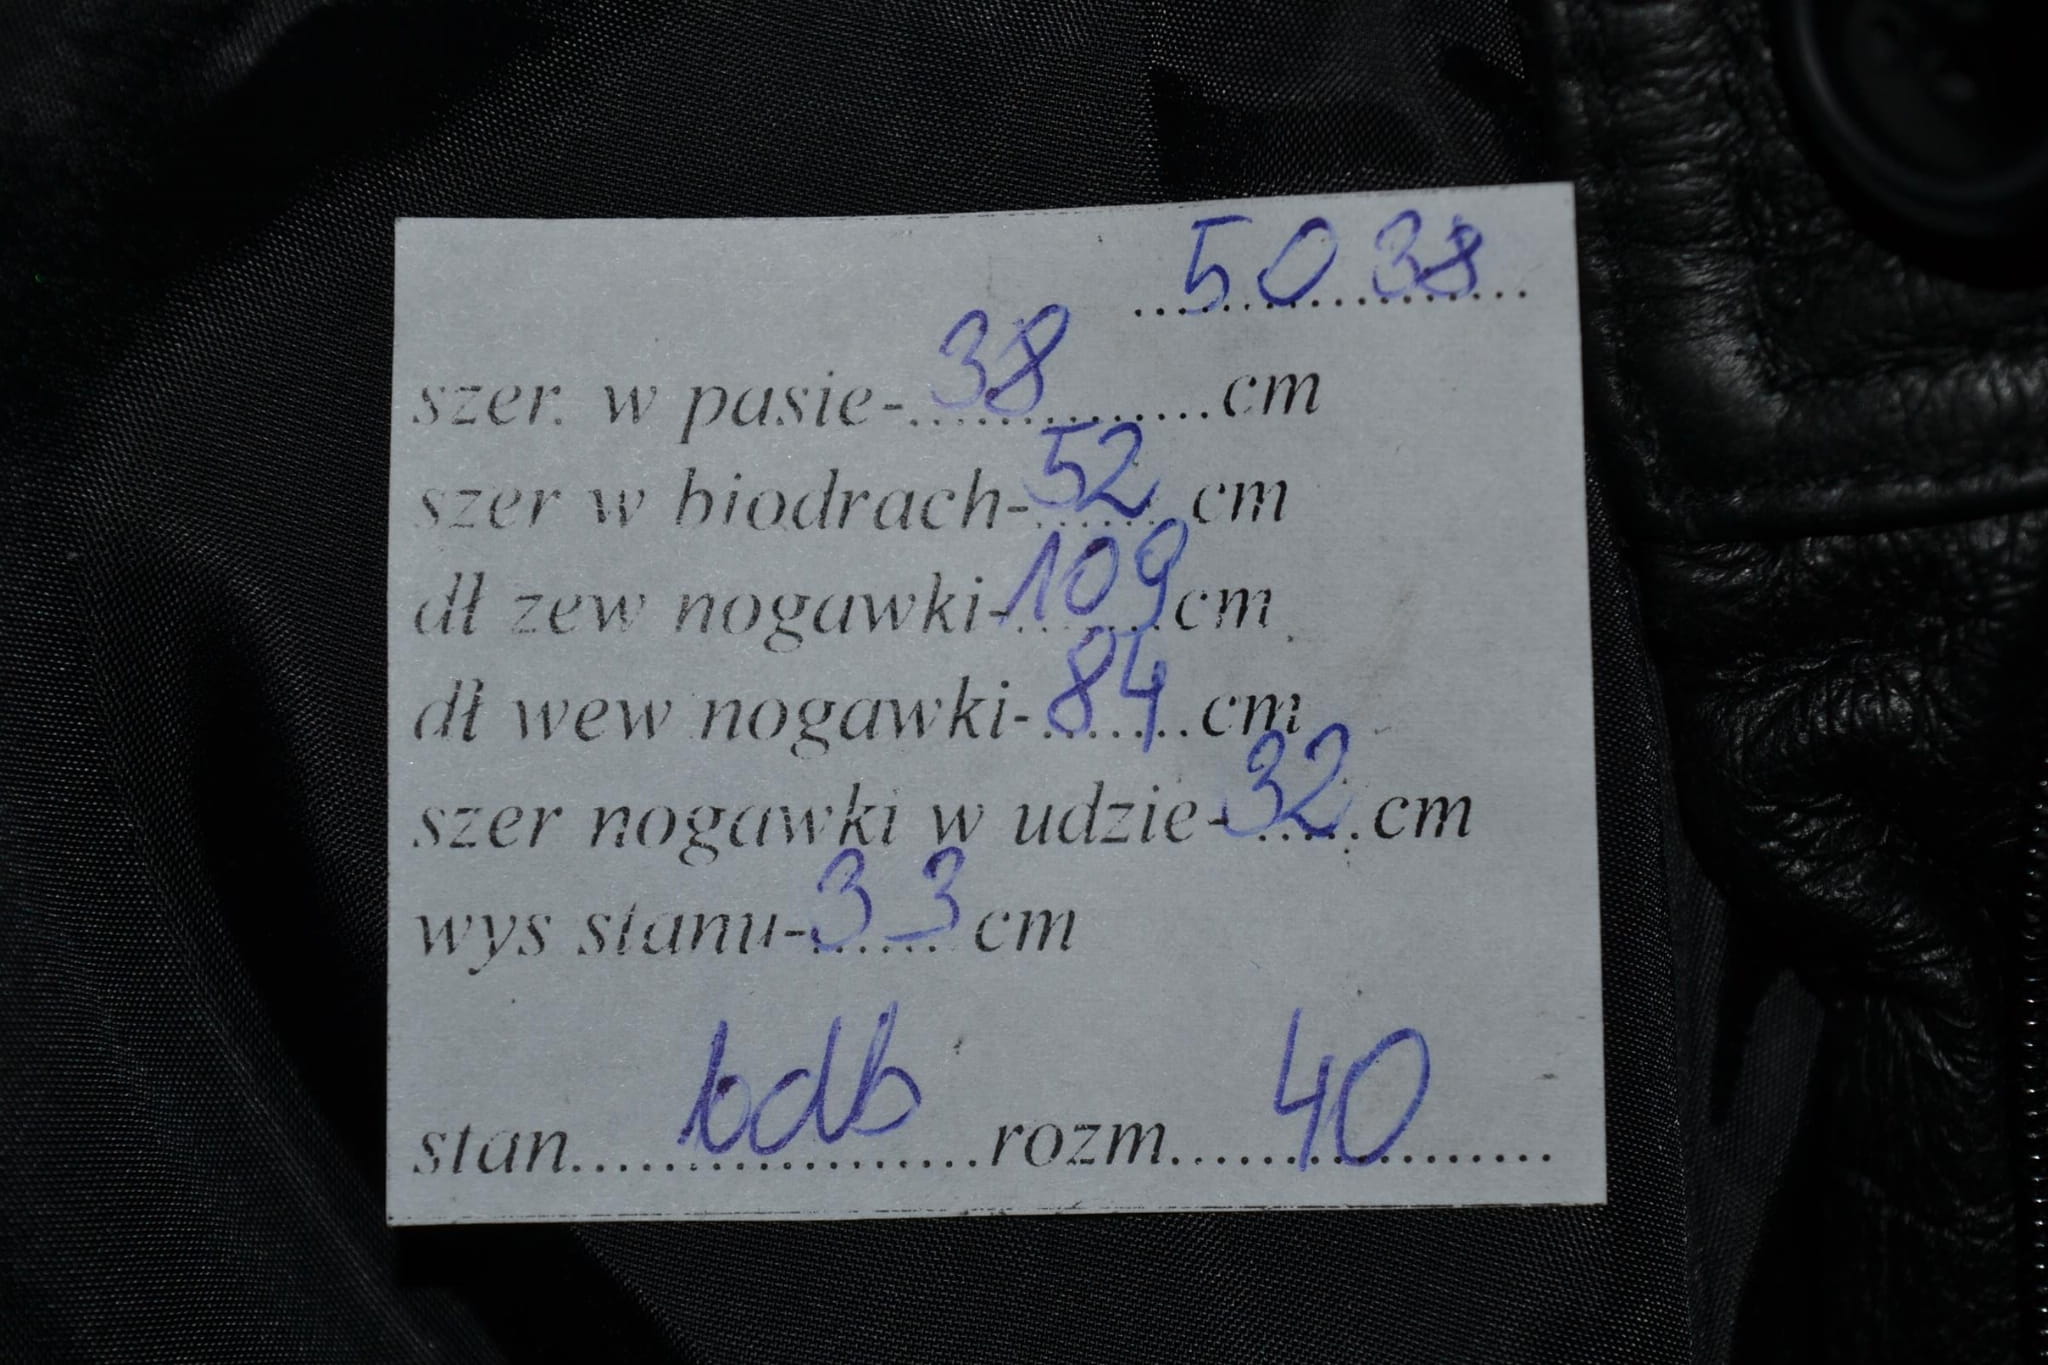 5038
szer. w pasie-38cm
szer w biodrach-52 cm
dł zew nogawki-109cm
dł wew nogawki-84cm
szer nogawki w udzie-32cm
wys stanu-33cm
stan bdb rozm 40